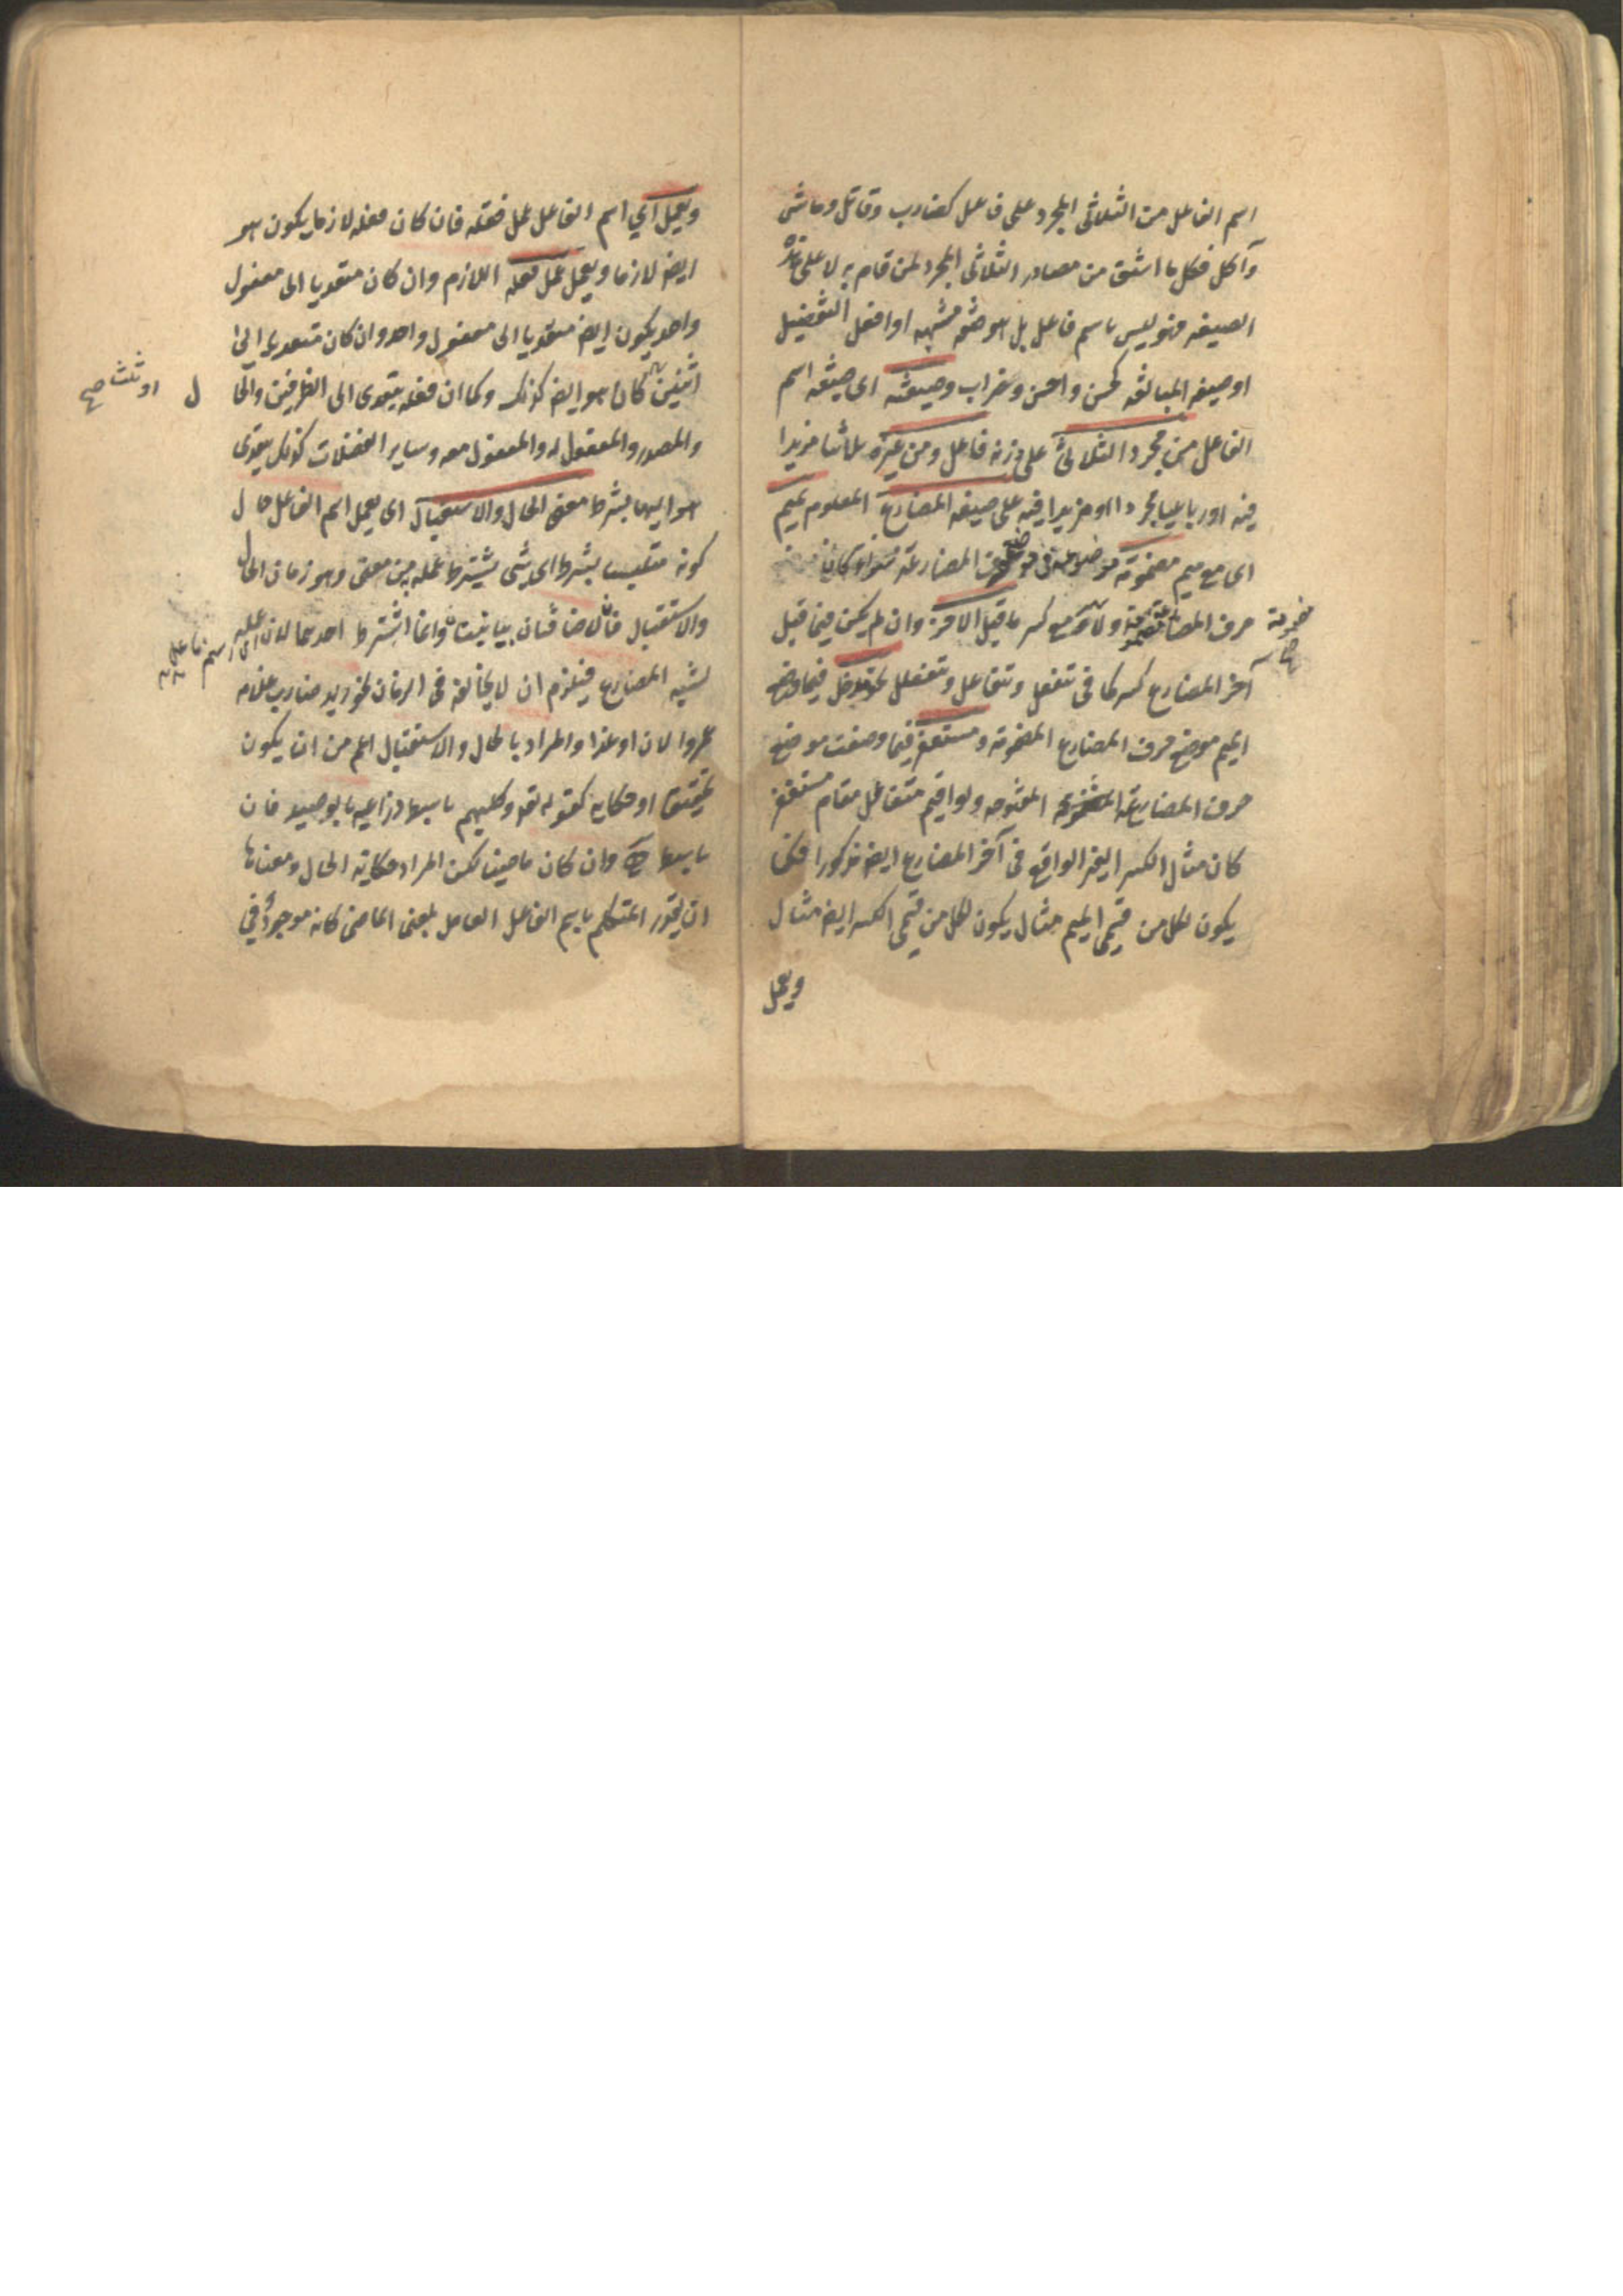 اسم الفاعل من الثلاثى المجرد على فاعل كضارب وقاتل وماشى
وآكل فكل ما اشتق من مصادر الثلاثى المجرد لمن قام به لا على هذه
الصيغه فهو ليس باسم فاعل بل هو صفه مشبهه او افعل التفضيل
او صيغه المبالغه كحسن واحسن وضراب وصيغته اى صيغه اسم
الفاعل من مجرد الثلاثى على زنه فاعل ومن غيره ثلاثيا مزيدا
فيه او رباعيا مجردا او مزيدا فيه على صيغه المضارع المعلوم بميم
اى مع ميم مضمومة موضوعة فى موضع حرف المضارعة سواء كان
حرف المضارعة مضمومة ولا ومع كسر ما قبل الاخر وان لم يكن فيما قبل
مضمومة صح
آخر المضارع كسر كما فى تتفعل وتتفاعل وتتفعلل نحو مدخل فيما وضع
الميم موضع حرف المضارع المضمومة ومستغفر فيما وضعت موضع
حرف المضارعة المفتوحه ولو اقيم متفاعل مقام مستغفر
كان مثال الكسر الغير الواقع فى آخر المضارع ايض مذكورا فكما
يكون لكل من قسمى الميم مثال يكون لكل من قسمى الكسر ايض مثال
ويعمل
ويعمل اى اسم الفاعل عمل فعله فان كان فعله لازما يكون هو
ايض لازما ويعمل عمل فعله اللازم وان كان متعديا الى مفعول
واحد يكون ايض متعديا الى مفعول واحد وان كان متعديا الى
اثنين كان هو ايض كذلك وكما ان فعله يتعدى الى الظرفين والحا
ل او ثلث صح
والمصدر والمفعول له والمفعول معه وساير الفضلات كذلك يتعدى
هو اليها بشرط معنى الحال والاستقبال اى يعمل اسم الفاعل حال
كونه متلبسا بشرط اى شى يشترط عمله به من معنى وهو زمان الحال
والاستقبال فالاضافتان بيانيتان وانما اشترط احدهما لان عمله
لشبه المضارع فيلزم ان لا يخالفه فى الزمان نحو زيد ضارب غلامه
عمروا الان او غدا والمراد بالحال والاستقبال اعم من ان يكون
تحقيقا او حكايه كقوله تعه وكلبهم باسط ذراعيه بالوصيد فان
باسط وان كان ماضيا لكن المراد حكاية الحال ومعناها
ان يقدر المتكلم باسم الفاعل العامل بمعنى الماضى كانه موجود فى